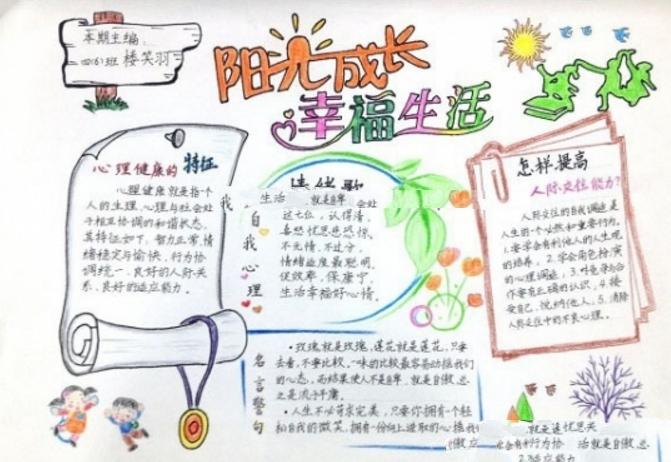 本期主编:
四(6)班 楼笑羽
阳光成长
幸福生活
心理健康的 特征
心理健康就是指个
人的生理、心理与社会处
于相互协调的和谐状态,
其特征如下:智力正常,情
绪稳定与愉快,行为协
调统一,良好的人际关
系,良好的适应能力。
我
自
我
心
理
生活 就是自卑 会处
这七位,认得清,
喜怒忧思悲恐惊。
不无情,不过分,
情绪适度最聪明。
促效率,保康宁,
生活幸福好心情。
怎样提高
人际交往能力?
人际交往的自我调适是
人生的一个必然和重要行为。
1.要学会有利他人的人生观
的培养,2.学会角色扮演
的心理调适,3.对竞争与合
作要有正确的认识,4.接
受自己,悦纳他人;5.清除
人际交往中的不良心理。
名
言
警
句
·玫瑰就是玫瑰,莲花就是莲花,只要
去看,不要比较。一味的比较最容易动摇我们
的心态,而结果使人不是自卑,就是自傲,总
之是流于平庸。
·人生不必苛求完美,只要你拥有一个轻
松自我的微笑,拥有一份向上进取的心
就是
会有利行为协 活就是自卑
2.适应能力